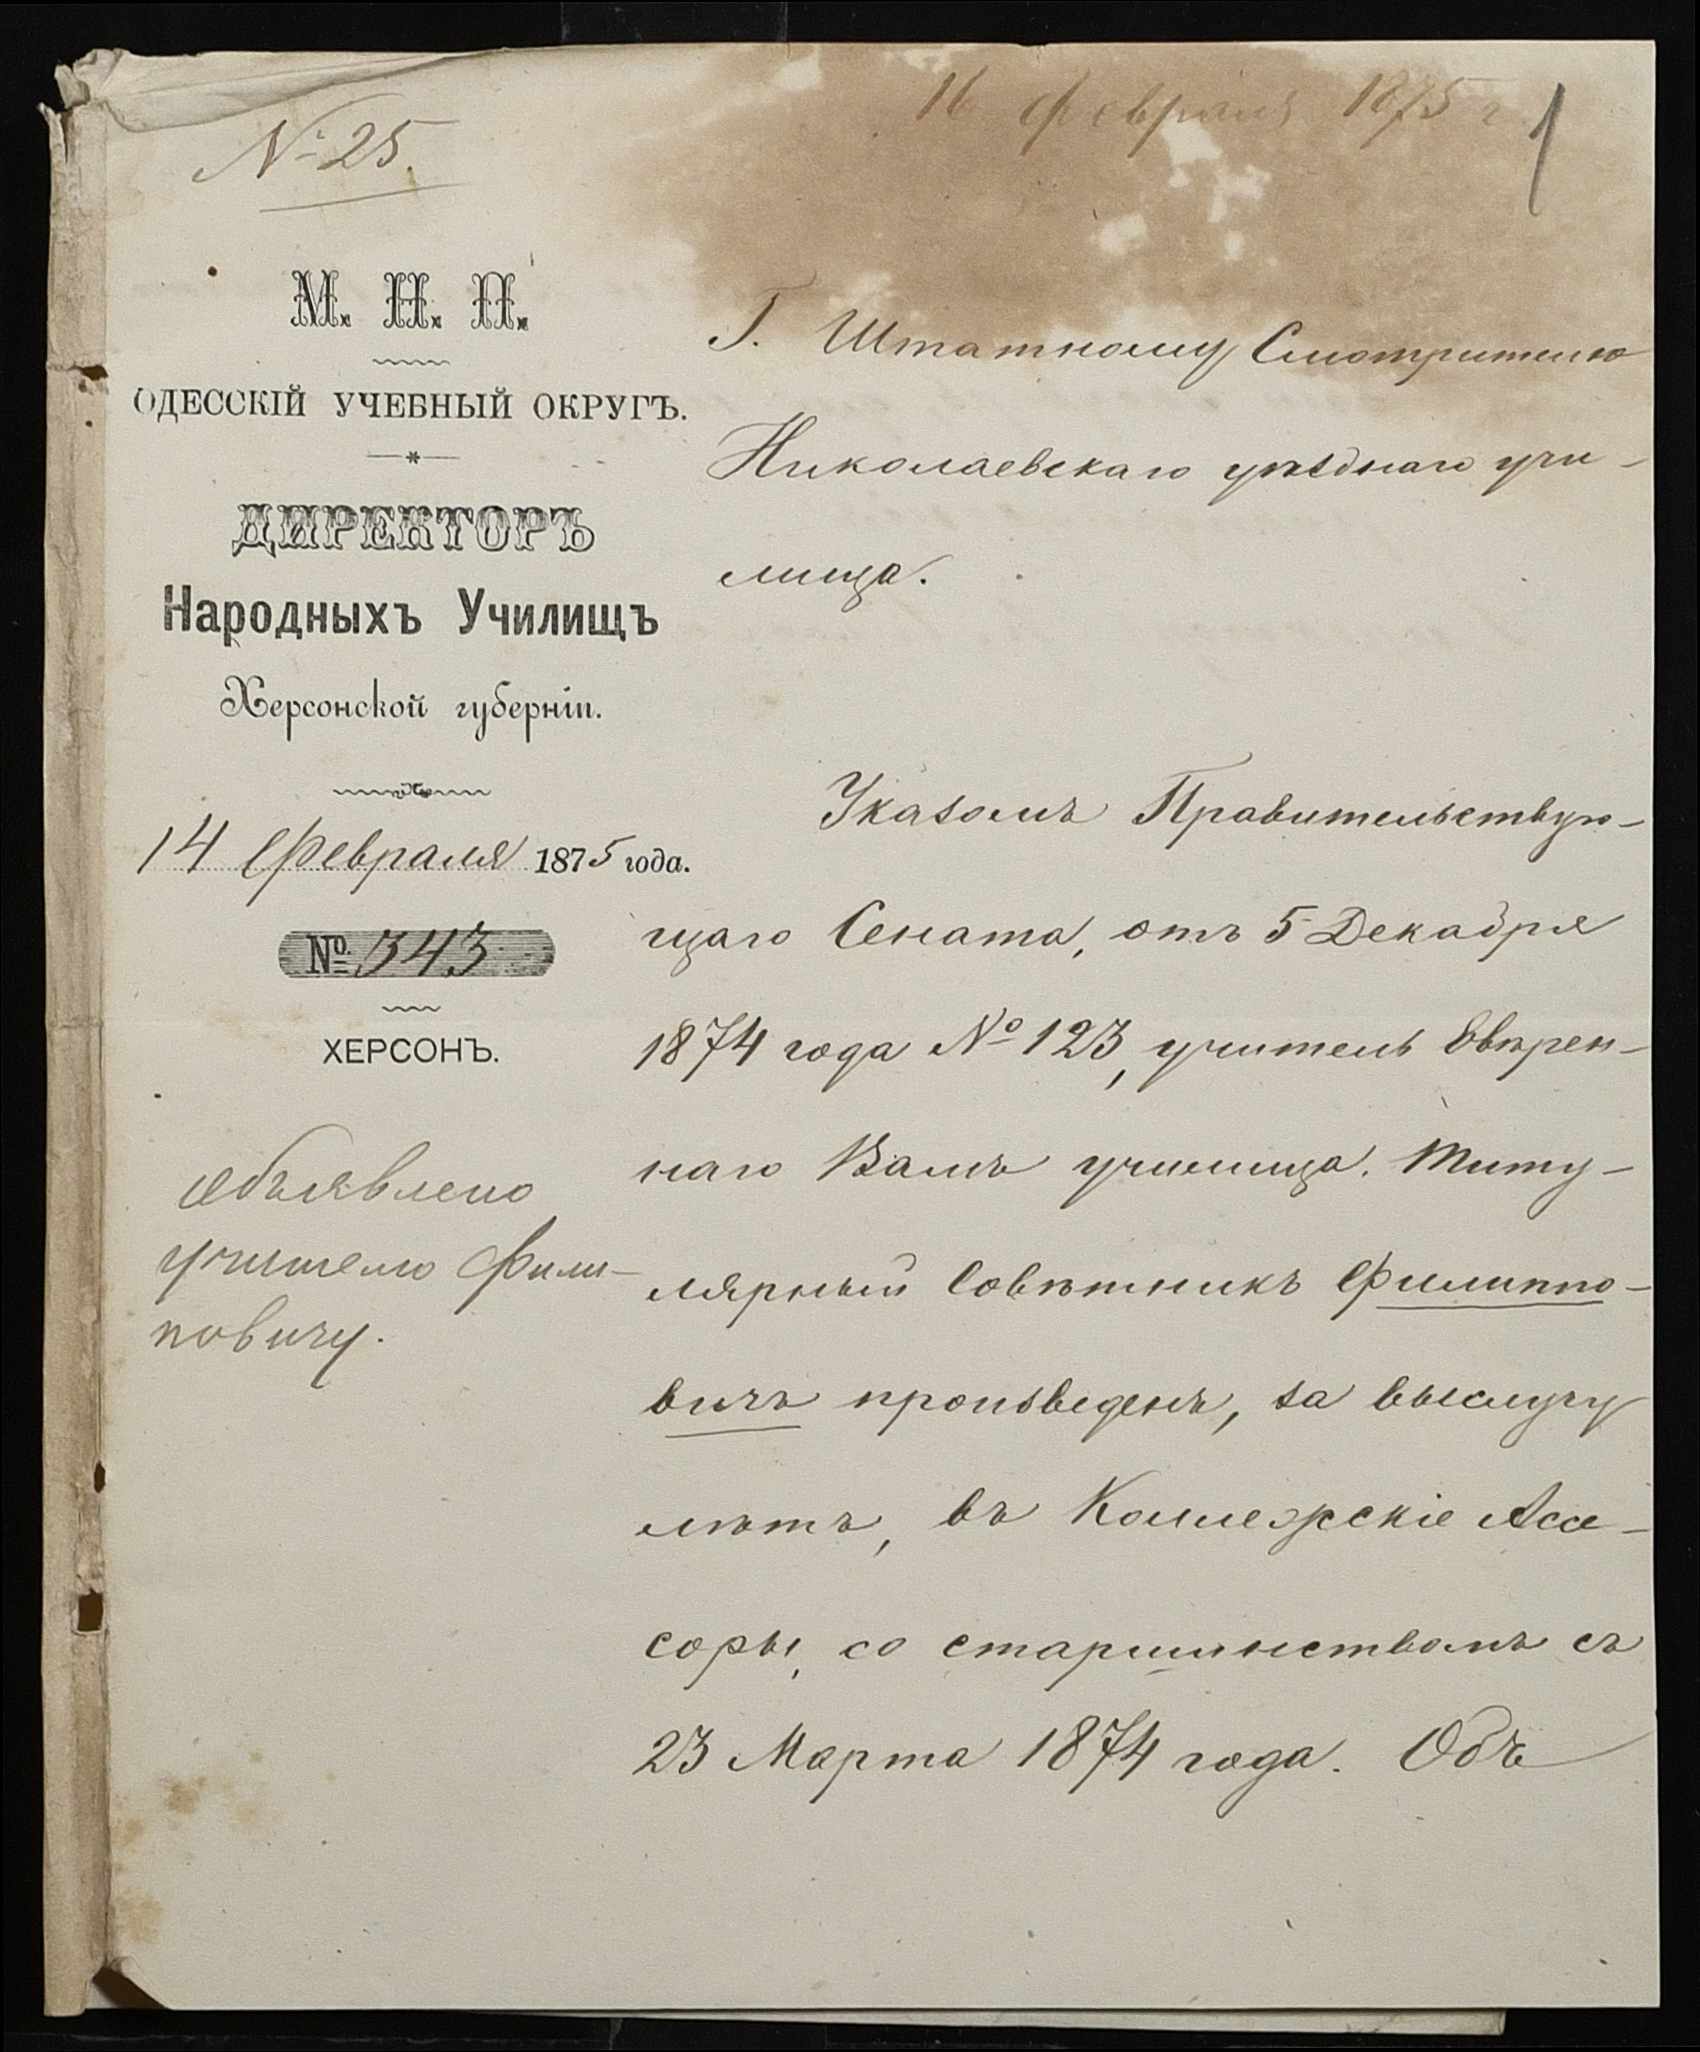 16 февраля 1875 г
1
№ 25.
М. Н. П.
ОДЕССКІЙ УЧЕБНЫЙ ОКРУГЪ.
ДИРЕКТОРЪ
Народныхъ Училищъ
Херсонской губерніи.
14 Февраля 1875 года.
№ 343
ХЕРСОНЪ.
Объявлено
учителю Фили-
повичу.
Г. Штатному Смотрителю
Николаевскаго уѣзднаго учи-
лища.
Указомъ Правительствую-
щаго Сената, отъ 5 Декабря
1874 года № 123, учитель ввѣрен-
наго Вамъ училища, Титу-
лярный Совѣтникъ Филиппо-
вичъ произведенъ, за выслугу
лѣтъ, въ Коллежскіе Ассе-
соры, со старшинствомъ съ
23 Марта 1874 года. Объ